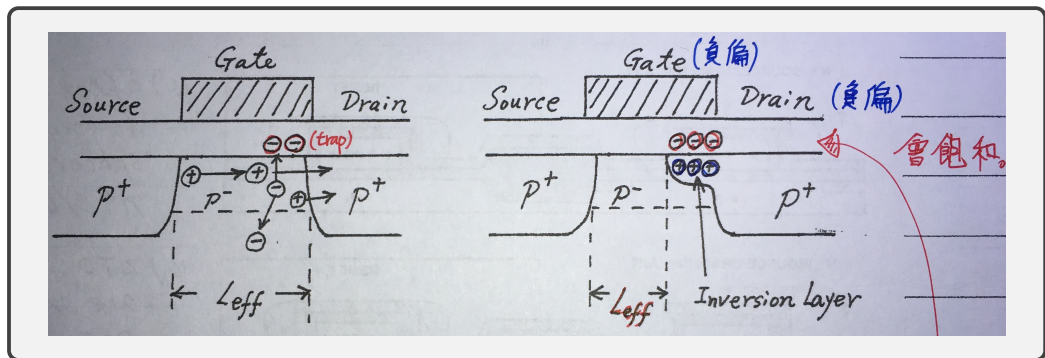 Gate
Source
Drain
⊖ ⊖ (trap)
⊕ ⊕
⊖
⊕
⊖
P⁺
P⁻
P⁺
Leff
Gate (負偏)
Source
Drain (負偏)
⊖⊖⊖
⊕⊕⊕
會飽和。
P⁺
P⁻
P⁺
Leff
Inversion Layer